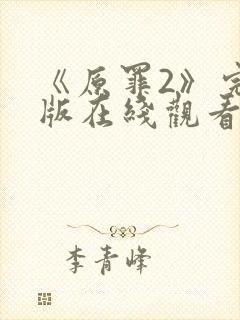 《原罪2》完
版在綫觀看
李青峰